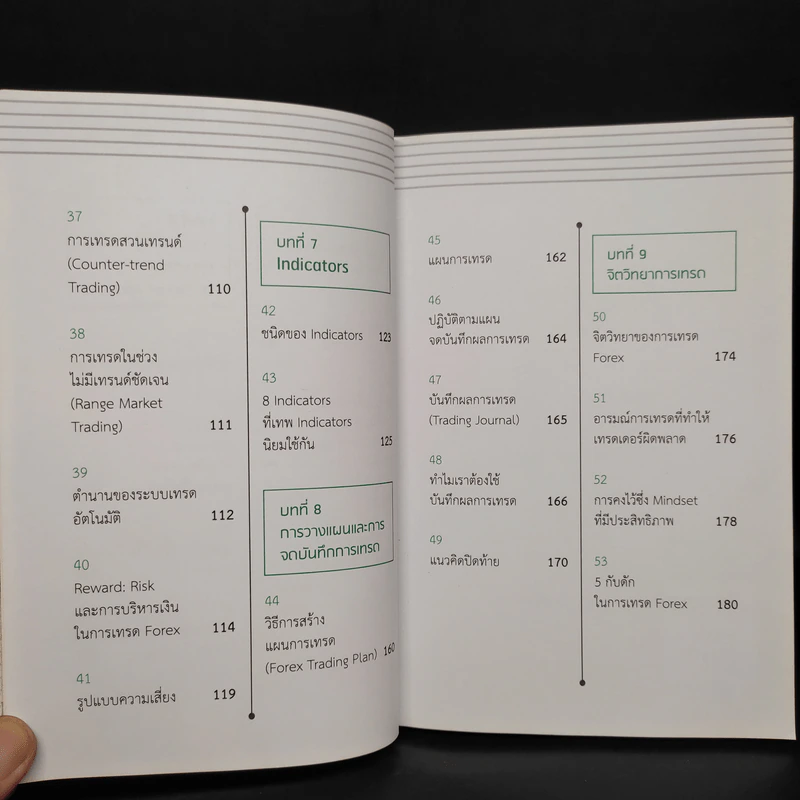 37
การเทรดสวนเทรนด์
(Counter-trend
Trading) 110
38
การเทรดในช่วง
ไม่มีเทรนด์ชัดเจน
(Range Market
Trading) 111
39
ตำนานของระบบเทรด
อัตโนมัติ 112
40
Reward: Risk
และการบริหารเงิน
ในการเทรด Forex 114
41
รูปแบบความเสี่ยง 119
บทที่ 7
Indicators
42
ชนิดของ Indicators 123
43
8 Indicators
ที่เทพ Indicators
นิยมใช้กัน 125
บทที่ 8
การวางแผนและการ
จดบันทึกการเทรด
44
วิธีการสร้าง
แผนการเทรด
(Forex Trading Plan) 160
45
แผนการเทรด 162
46
ปฏิบัติตามแผน
จดบันทึกผลการเทรด 164
47
บันทึกผลการเทรด
(Trading Journal) 165
48
ทำไมเราต้องใช้
บันทึกผลการเทรด 166
49
แนวคิดปิดท้าย 170
บทที่ 9
จิตวิทยาการเทรด
50
จิตวิทยาของการเทรด
Forex 174
51
อารมณ์การเทรดที่ทำให้
เทรดเดอร์ผิดพลาด 176
52
การคงไว้ซึ่ง Mindset
ที่มีประสิทธิภาพ 178
53
5 กับดัก
ในการเทรด Forex 180